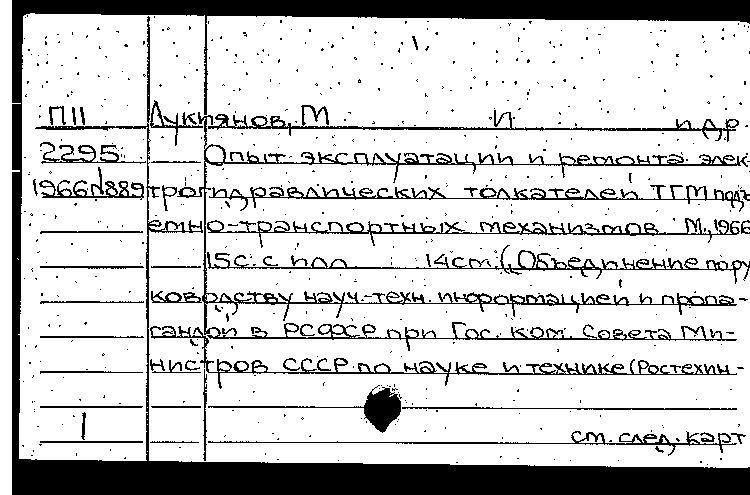 1.
П11 Лукиянов, М и др
2295 Опыт эксплуатации и ремонта элек
1966 №889 трогидравлических толкателей ТГМ подъ
емно-транспортных механизмов. М., 1966
15с. с илл 14см. (Объединение по ру
ководству науч.-техн. информацией и пропа-
гандой в РСФСР при Гос. ком. Совета Ми-
нистров СССР по науке и технике (Ростехин-
1
см. след. карт